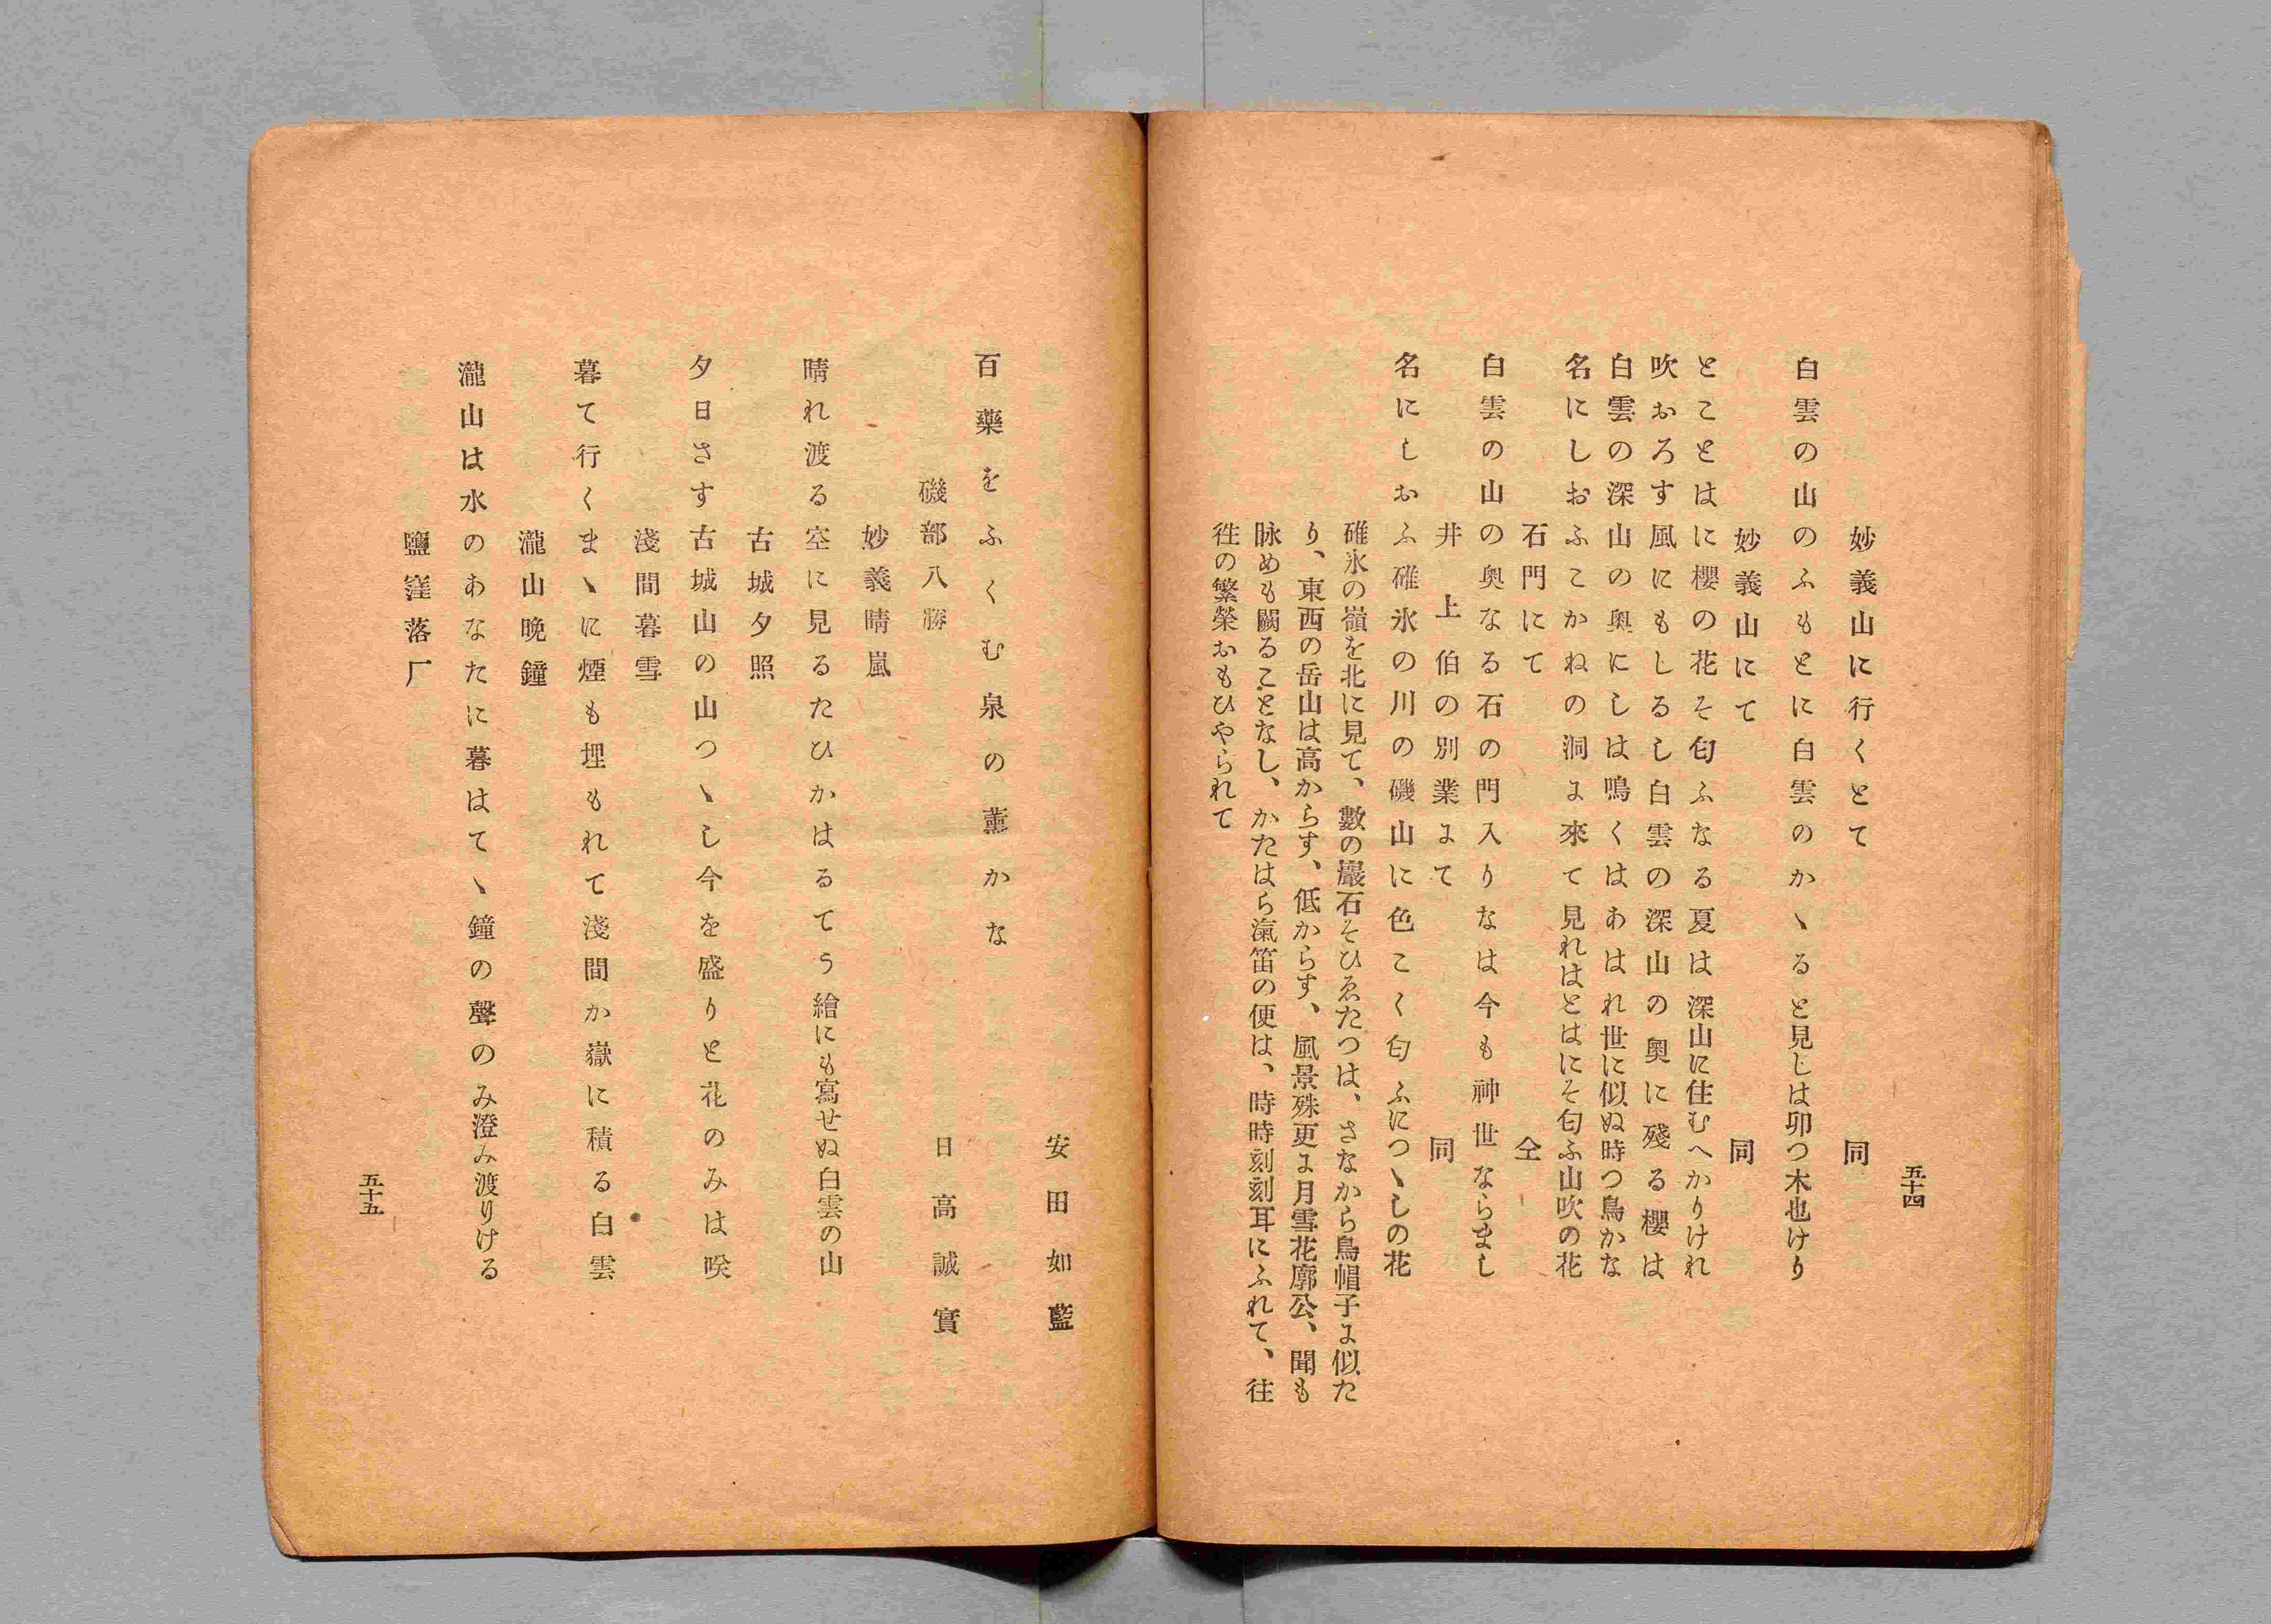 五十四
妙義山に行くとて　同
白雲の山のふもとに白雲のかゝると見しは卯つ木也けり
妙義山にて　同
とことはに櫻の花そ匂ふなる夏は深山に住むへかりけれ
吹おろす風にもしるし白雲の深山の奧に殘る櫻は
白雲の深山の奧にしは鳴くはあはれ世に似ぬ時つ鳥かな
名にしおふこかねの洞よ來て見れはとはにそ匂ふ山吹の花
石門にて　仝
白雲の山の奧なる石の門入りなは今も神世ならまし
井上伯の別業よて　同
名にしおふ碓氷の川の磯山に色こく匂ふにつゝしの花
碓氷の嶺を北に見て、數の巖石そひゑたつは、さなから烏帽子よ似た
り、東西の岳山は高からす、低からす、風景殊更よ月雪花廓公、聞も
眺めも闕ることなし、かたはら滊笛の便は、時時刻刻耳にふれて、往
徃の繁榮おもひやられて
安田如藍
百藥をふくむ泉の薰かな
磯部八勝　日高誠實
妙義晴嵐
晴れ渡る空に見るたひかはるてう繪にも寫せぬ白雲の山
古城夕照
夕日さす古城山の山つゝし今を盛りと花のみは咲
淺間暮雪
暮て行くまゝに煙も埋もれて淺間か嶽に積る白雲
瀧山晩鐘
瀧山は水のあなたに暮はてゝ鐘の聲のみ澄み渡りける
鹽窪落厂
五十五